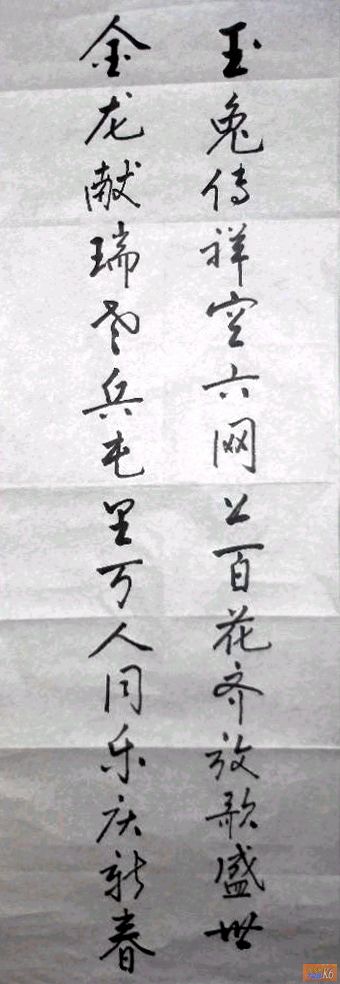 玉兔传祥空六网上百花齐放歌盛世
金龙献瑞老兵屯里万人同乐庆新春
K6